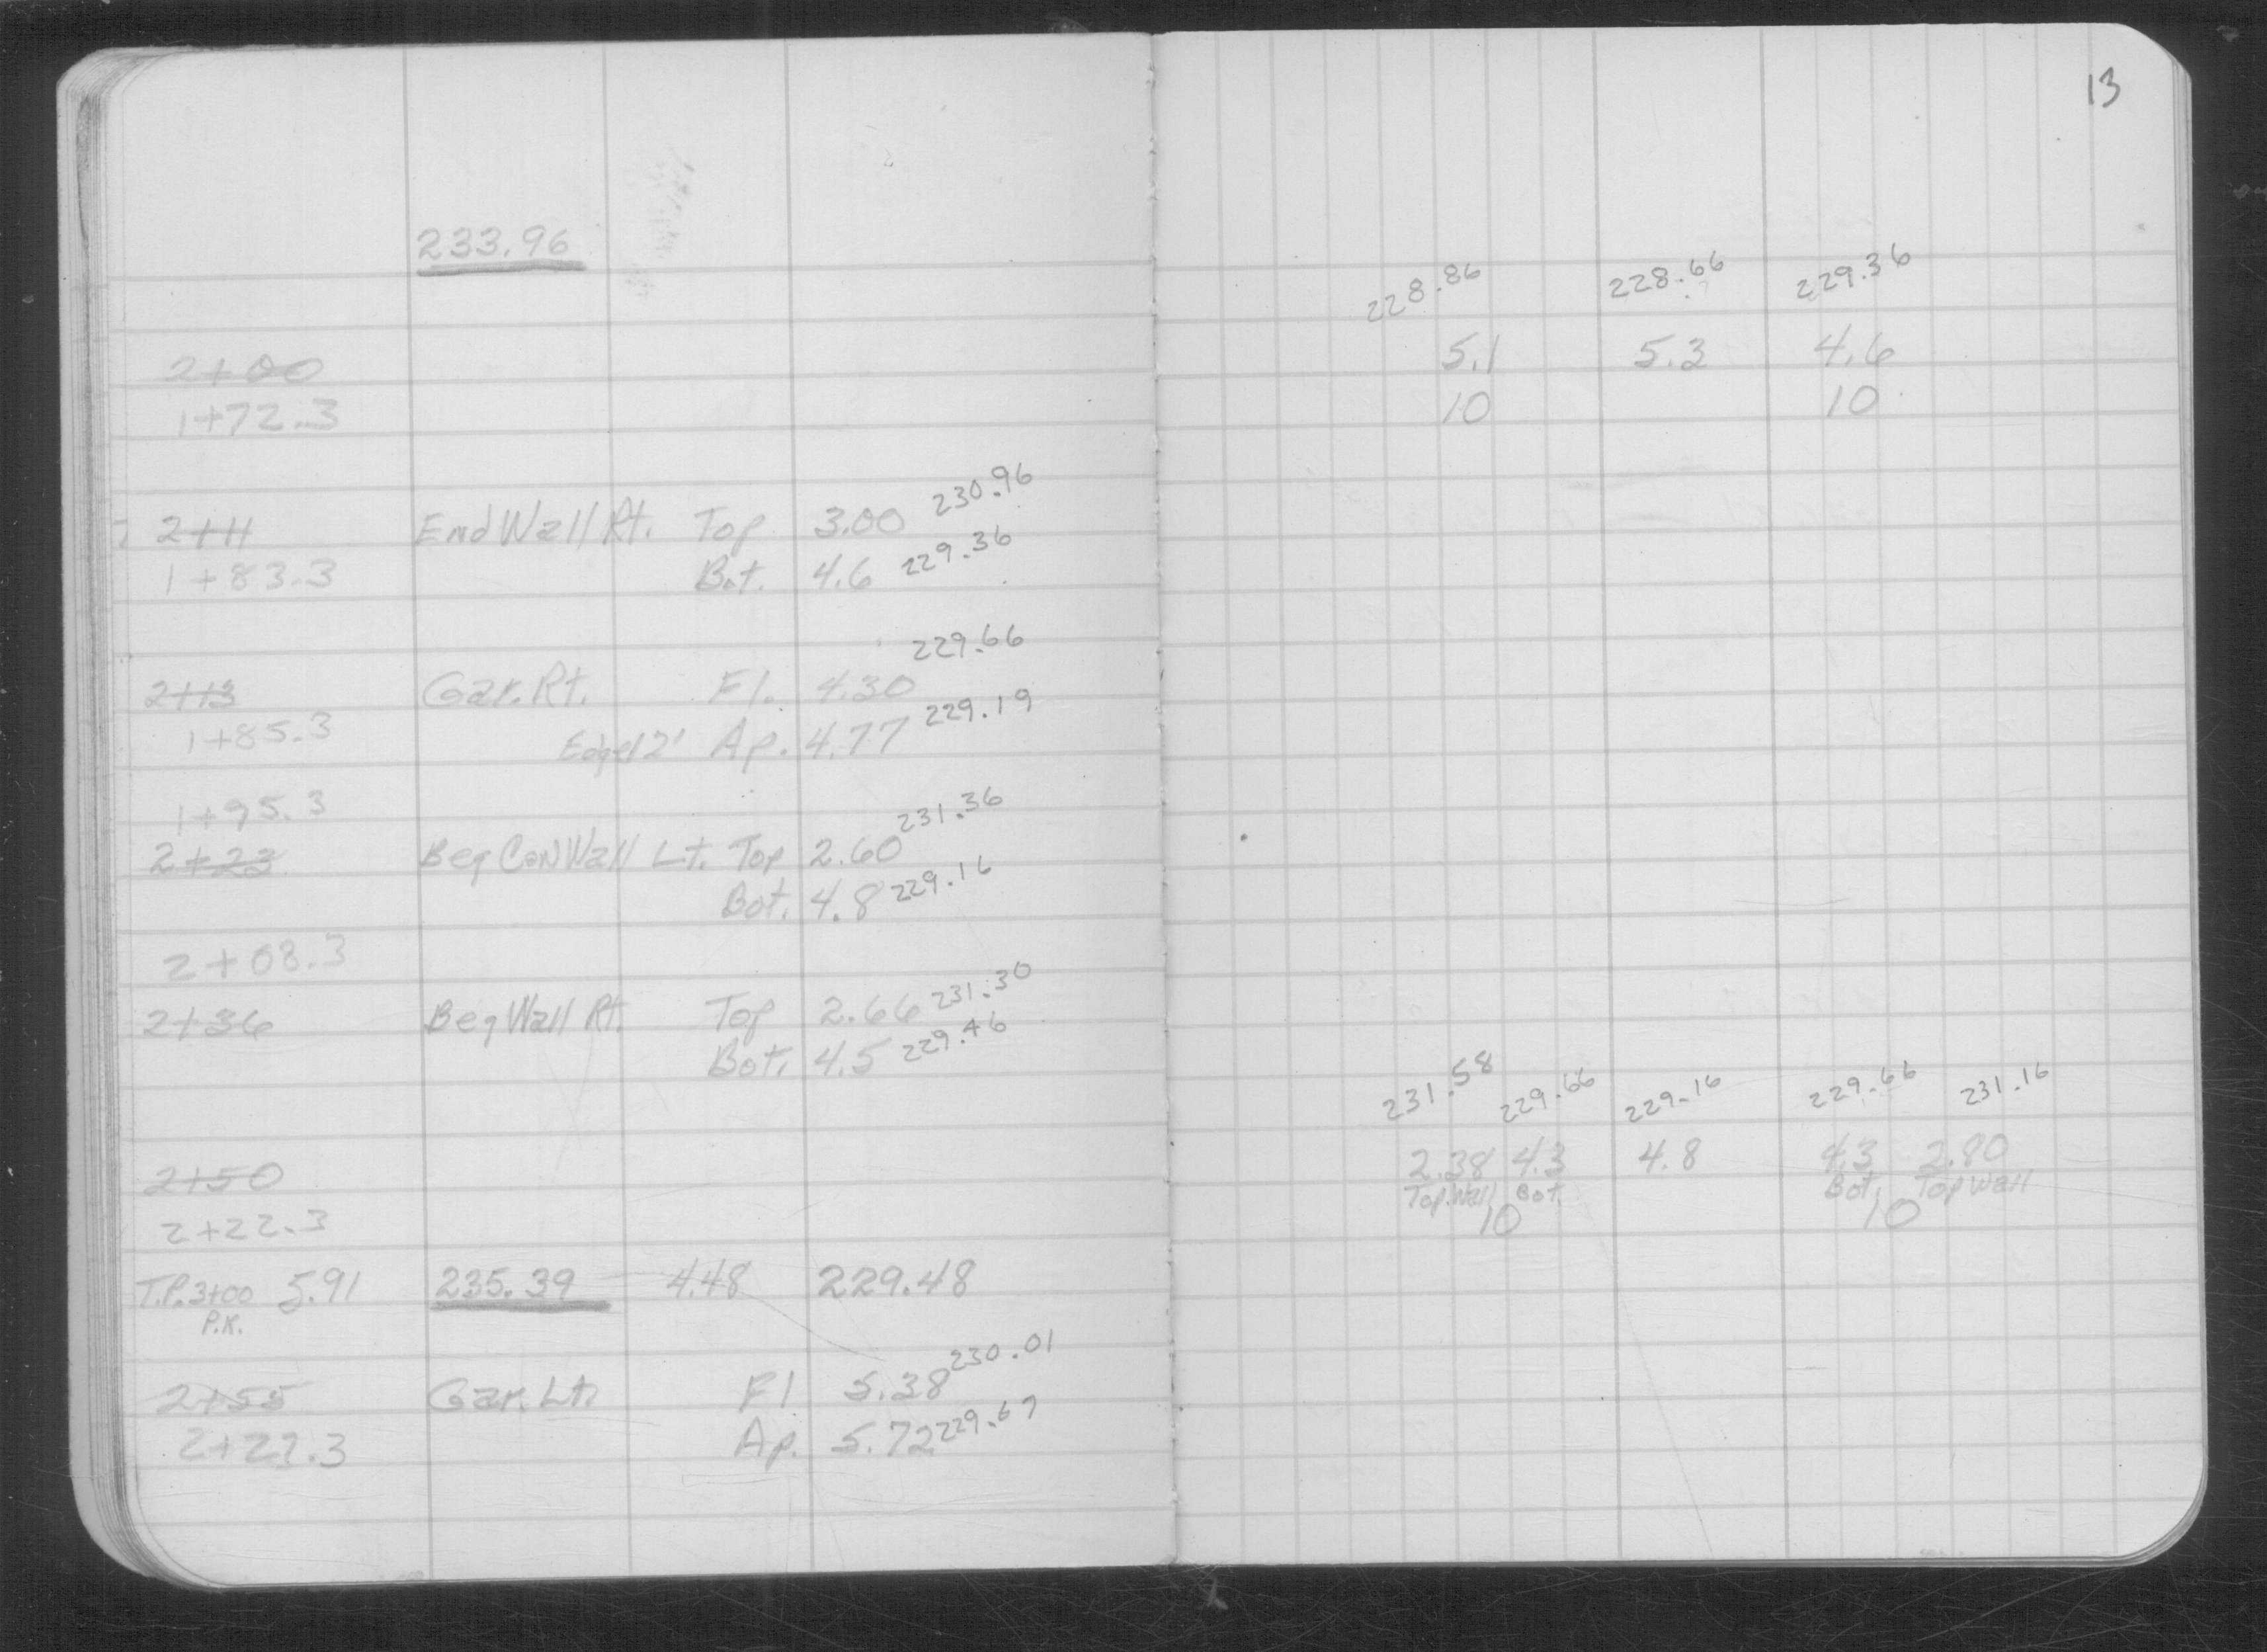 13
233.96
228.86 228.66 229.36
2+00 5.1 5.3 4.6
1+72.3 10 10
230.96
2+11 End Wall Rt. Top 3.00
229.36
1+83.3 Bot. 4.6
229.66
2+13 Gar. Rt. Fl. 4.30
1+85.3 Edge 12' Ap. 4.77 229.19
1+95.3
231.36
2+23 Beg Con Wall Lt. Top 2.60
Bot. 4.8 229.16
2+08.3
2+36 Beg Wall Rt. Top 2.66 231.30
Bot. 4.5 229.46
231.58 229.66 229.16 229.66 231.16
2+50 2.38 4.3 4.8 4.3 2.80
Top Wall Bot. Bot. Top Wall
2+22.3 10 10
T.P. 3+00 5.91 235.39 4.48 229.48
P.K.
230.01
2+55 Gar. Lt. Fl 5.38
2+27.3 Ap. 5.72 229.67